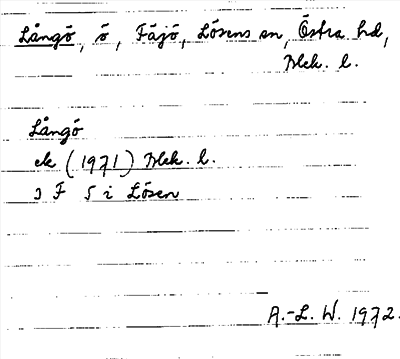 Långö, ö, Fäjö, Lösens sn, Östra hd,
Blek. l.
Långö
ek (1971) Blek. l.
3 F 5 i Lösen
A.-L. W. 1972.